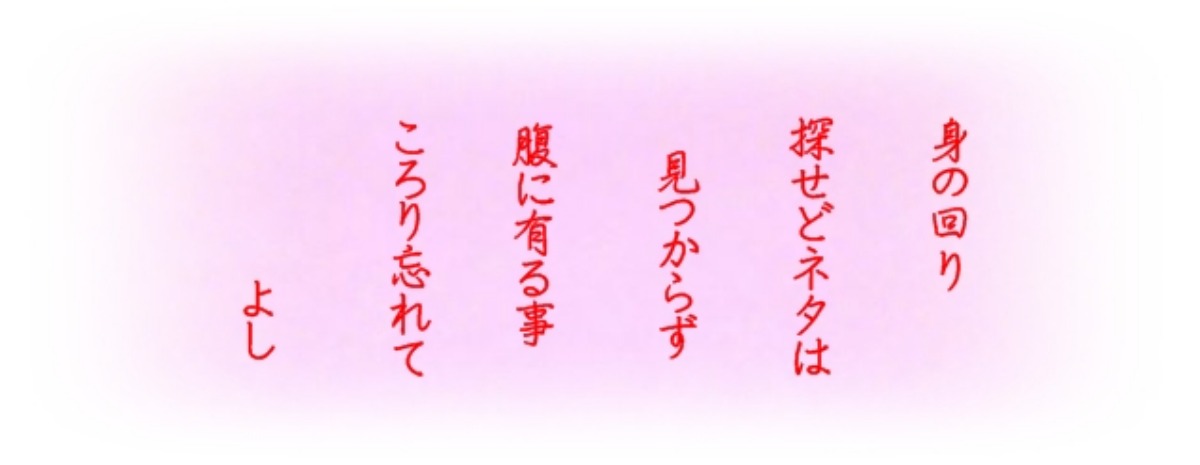 身の回り
探せどネタは
見つからず
腹に有る事
ころり忘れて
よし